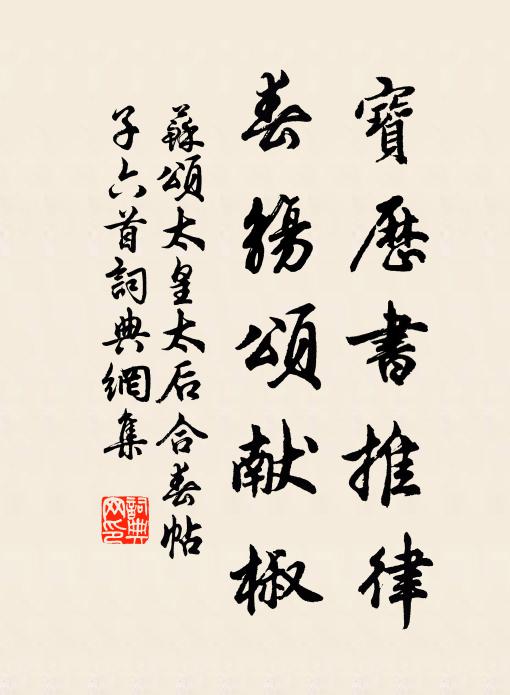 寶歷書推律
春觴頌献椒
蘇頌太皇太后合春帖
子六首詞典網集
詞典
网印